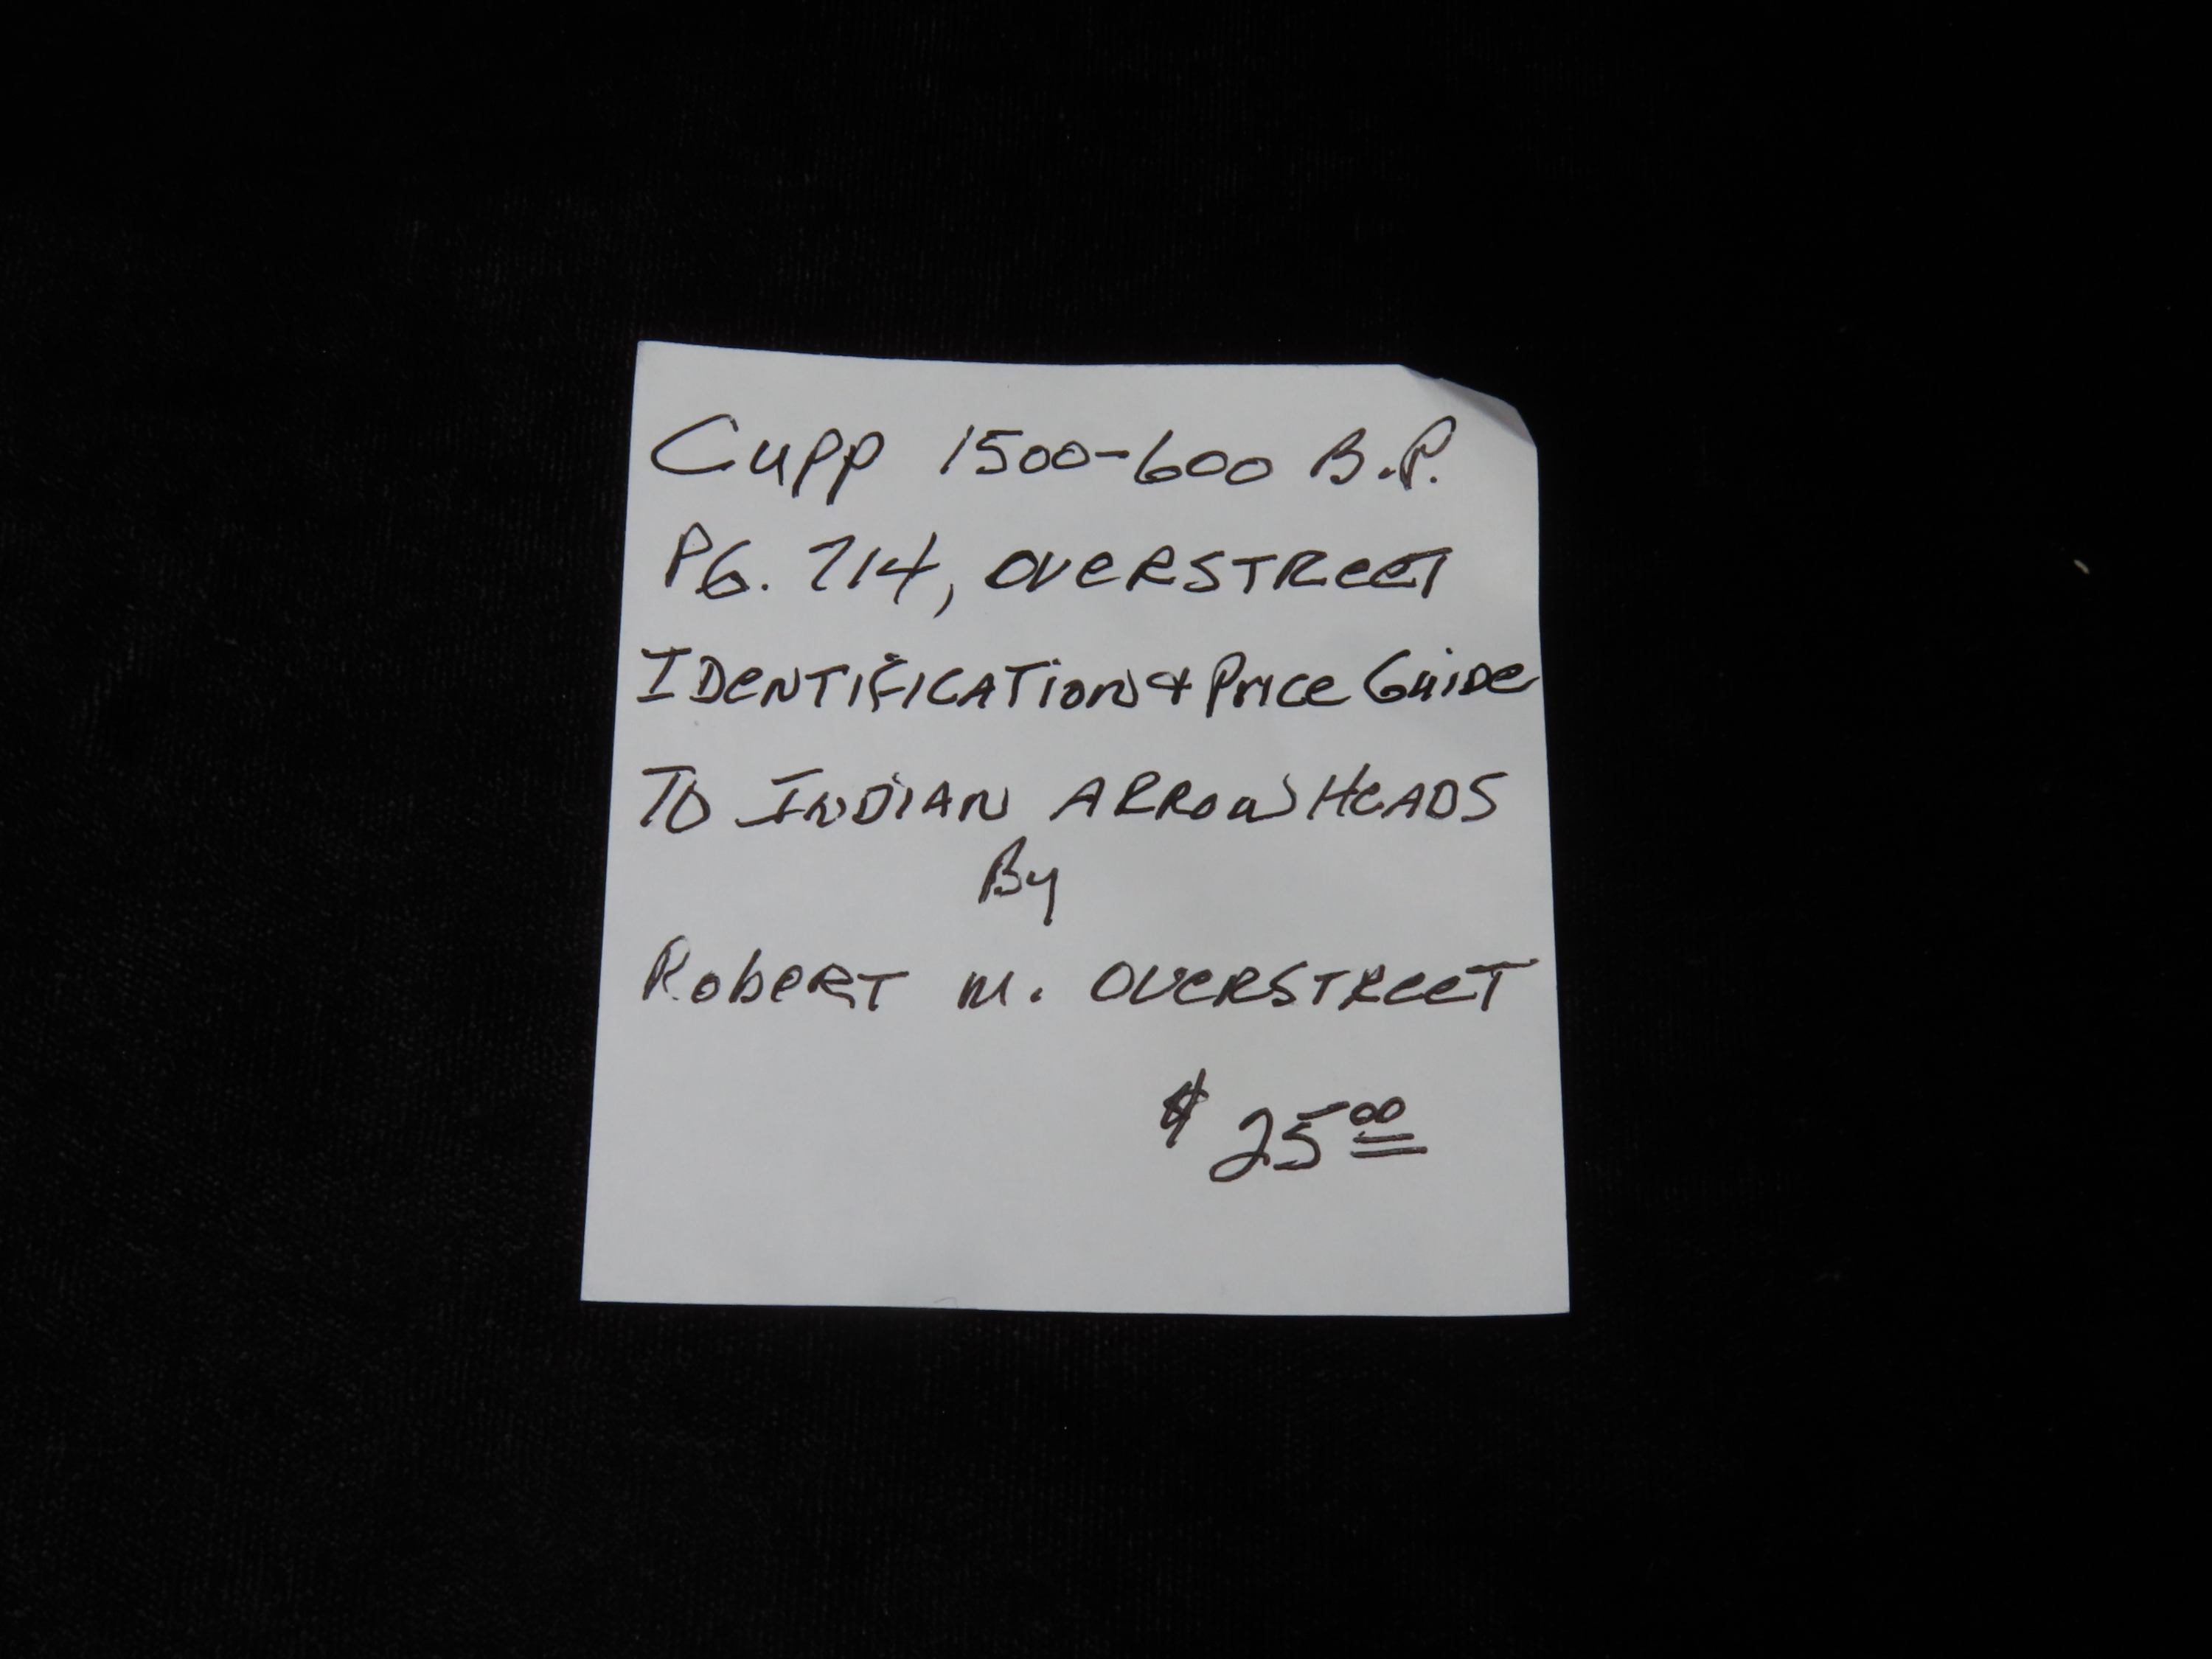 Cupp 1500-600 B.P.
PG. 714, OVERSTREET
IDENTIFICATION & Price Guide
TO INDIAN ARROWHEADS
By
Robert M. OVERSTREET
$ 25.00